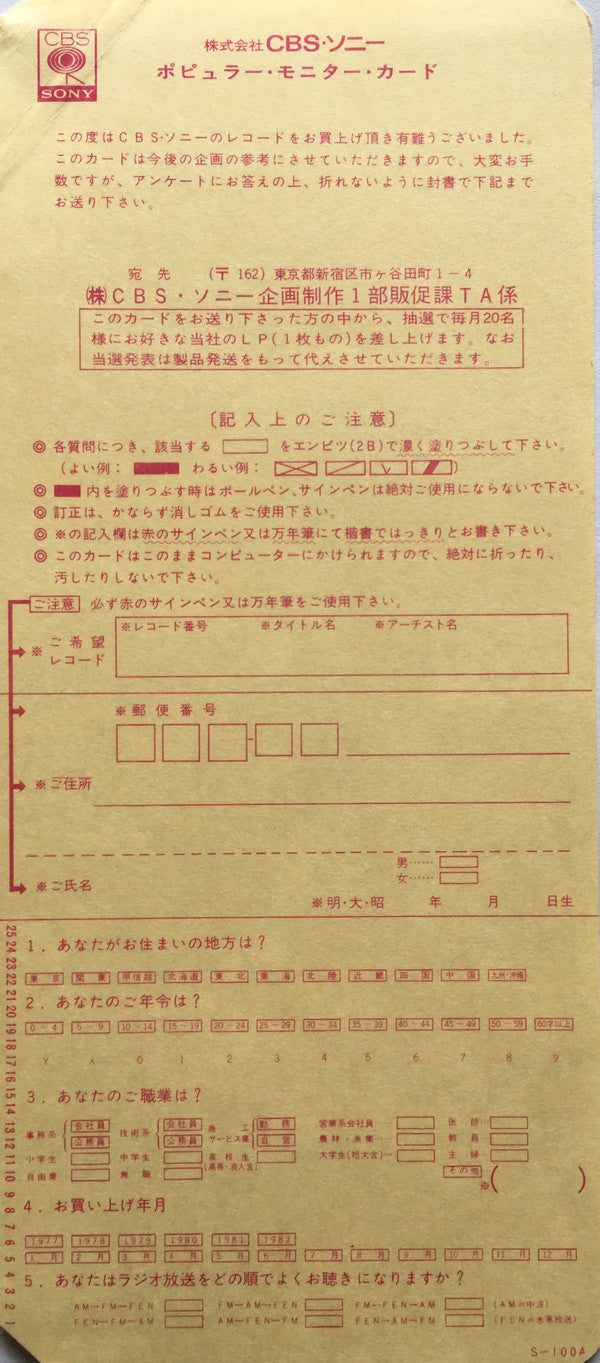 CBS
SONY
株式会社 CBS・ソニー
ポピュラー・モニター・カード
この度はCBS・ソニーのレコードをお買上げ頂き有難うございました。
このカードは今後の企画の参考にさせていただきますので、大変お手
数ですが、アンケートにお答えの上、折れないように封書で下記まで
お送り下さい。
宛先 (〒162) 東京都新宿区市ヶ谷田町1-4
㈱CBS・ソニー企画制作1部販促課TA係
このカードをお送り下さった方の中から、抽選で毎月20名
様にお好きな当社のLP(1枚もの)を差し上げます。なお
当選発表は製品発送をもって代えさせていただきます。
〔記入上のご注意〕
◎ 各質問につき、該当する をエンピツ(2B)で濃く塗りつぶして下さい。
(よい例： わるい例： )
◎ 内を塗りつぶす時はボールペン、サインペンは絶対ご使用にならないで下さい。
◎ 訂正は、かならず消しゴムをご使用下さい。
◎ ※の記入欄は赤のサインペン又は万年筆にて楷書ではっきりとお書き下さい。
◎ このカードはこのままコンピューターにかけられますので、絶対に折ったり、
汚したりしないで下さい。
ご注意 必ず赤のサインペン又は万年筆をご使用下さい。
※レコード番号 ※タイトル名 ※アーチスト名
※ ご希望
レコード
※郵便番号
※ご住所
男……
女……
※ご氏名
※明・大・昭 年 月 日生
25 24 23 22 21 20 19 18 17 16 15 14 13 12 11 10 9 8 7 6 5 4 3 2 1
1. あなたがお住まいの地方は？
東京 関東 甲信越 北海道 東北 東海 北陸 近畿 四国 中国 九州・沖縄
2. あなたのご年令は？
0-4 5-9 10-14 15-19 20-24 25-29 30-34 35-39 40-44 45-49 50-59 60才以上
Y 人 0 1 2 3 4 5 6 7 8 9
3. あなたのご職業は？
事務系 会社員 公務員 技術系 会社員 公務員 商工サービス業 勤務 自営 営業系会社員…… 医師……
農林・漁業…… 教員……
小学生 中学生 高校生 (高専・浪人含) 大学生(短大含)… 主婦……
自由業 無職 その他 ※( )
4. お買い上げ年月
1977 1978 1979 1980 1981 1982
1月 2月 3月 4月 5月 6月 7月 8月 9月 10月 11月 12月
5. あなたはラジオ放送をどの順でよくお聴きになりますか？
AM→FM→FEN FM→AM→FEN FM→FEN→AM (AM=中波)
FEN→FM→AM AM→FEN→FM FEN→AM→FM (FEN=米軍放送)
S-100A